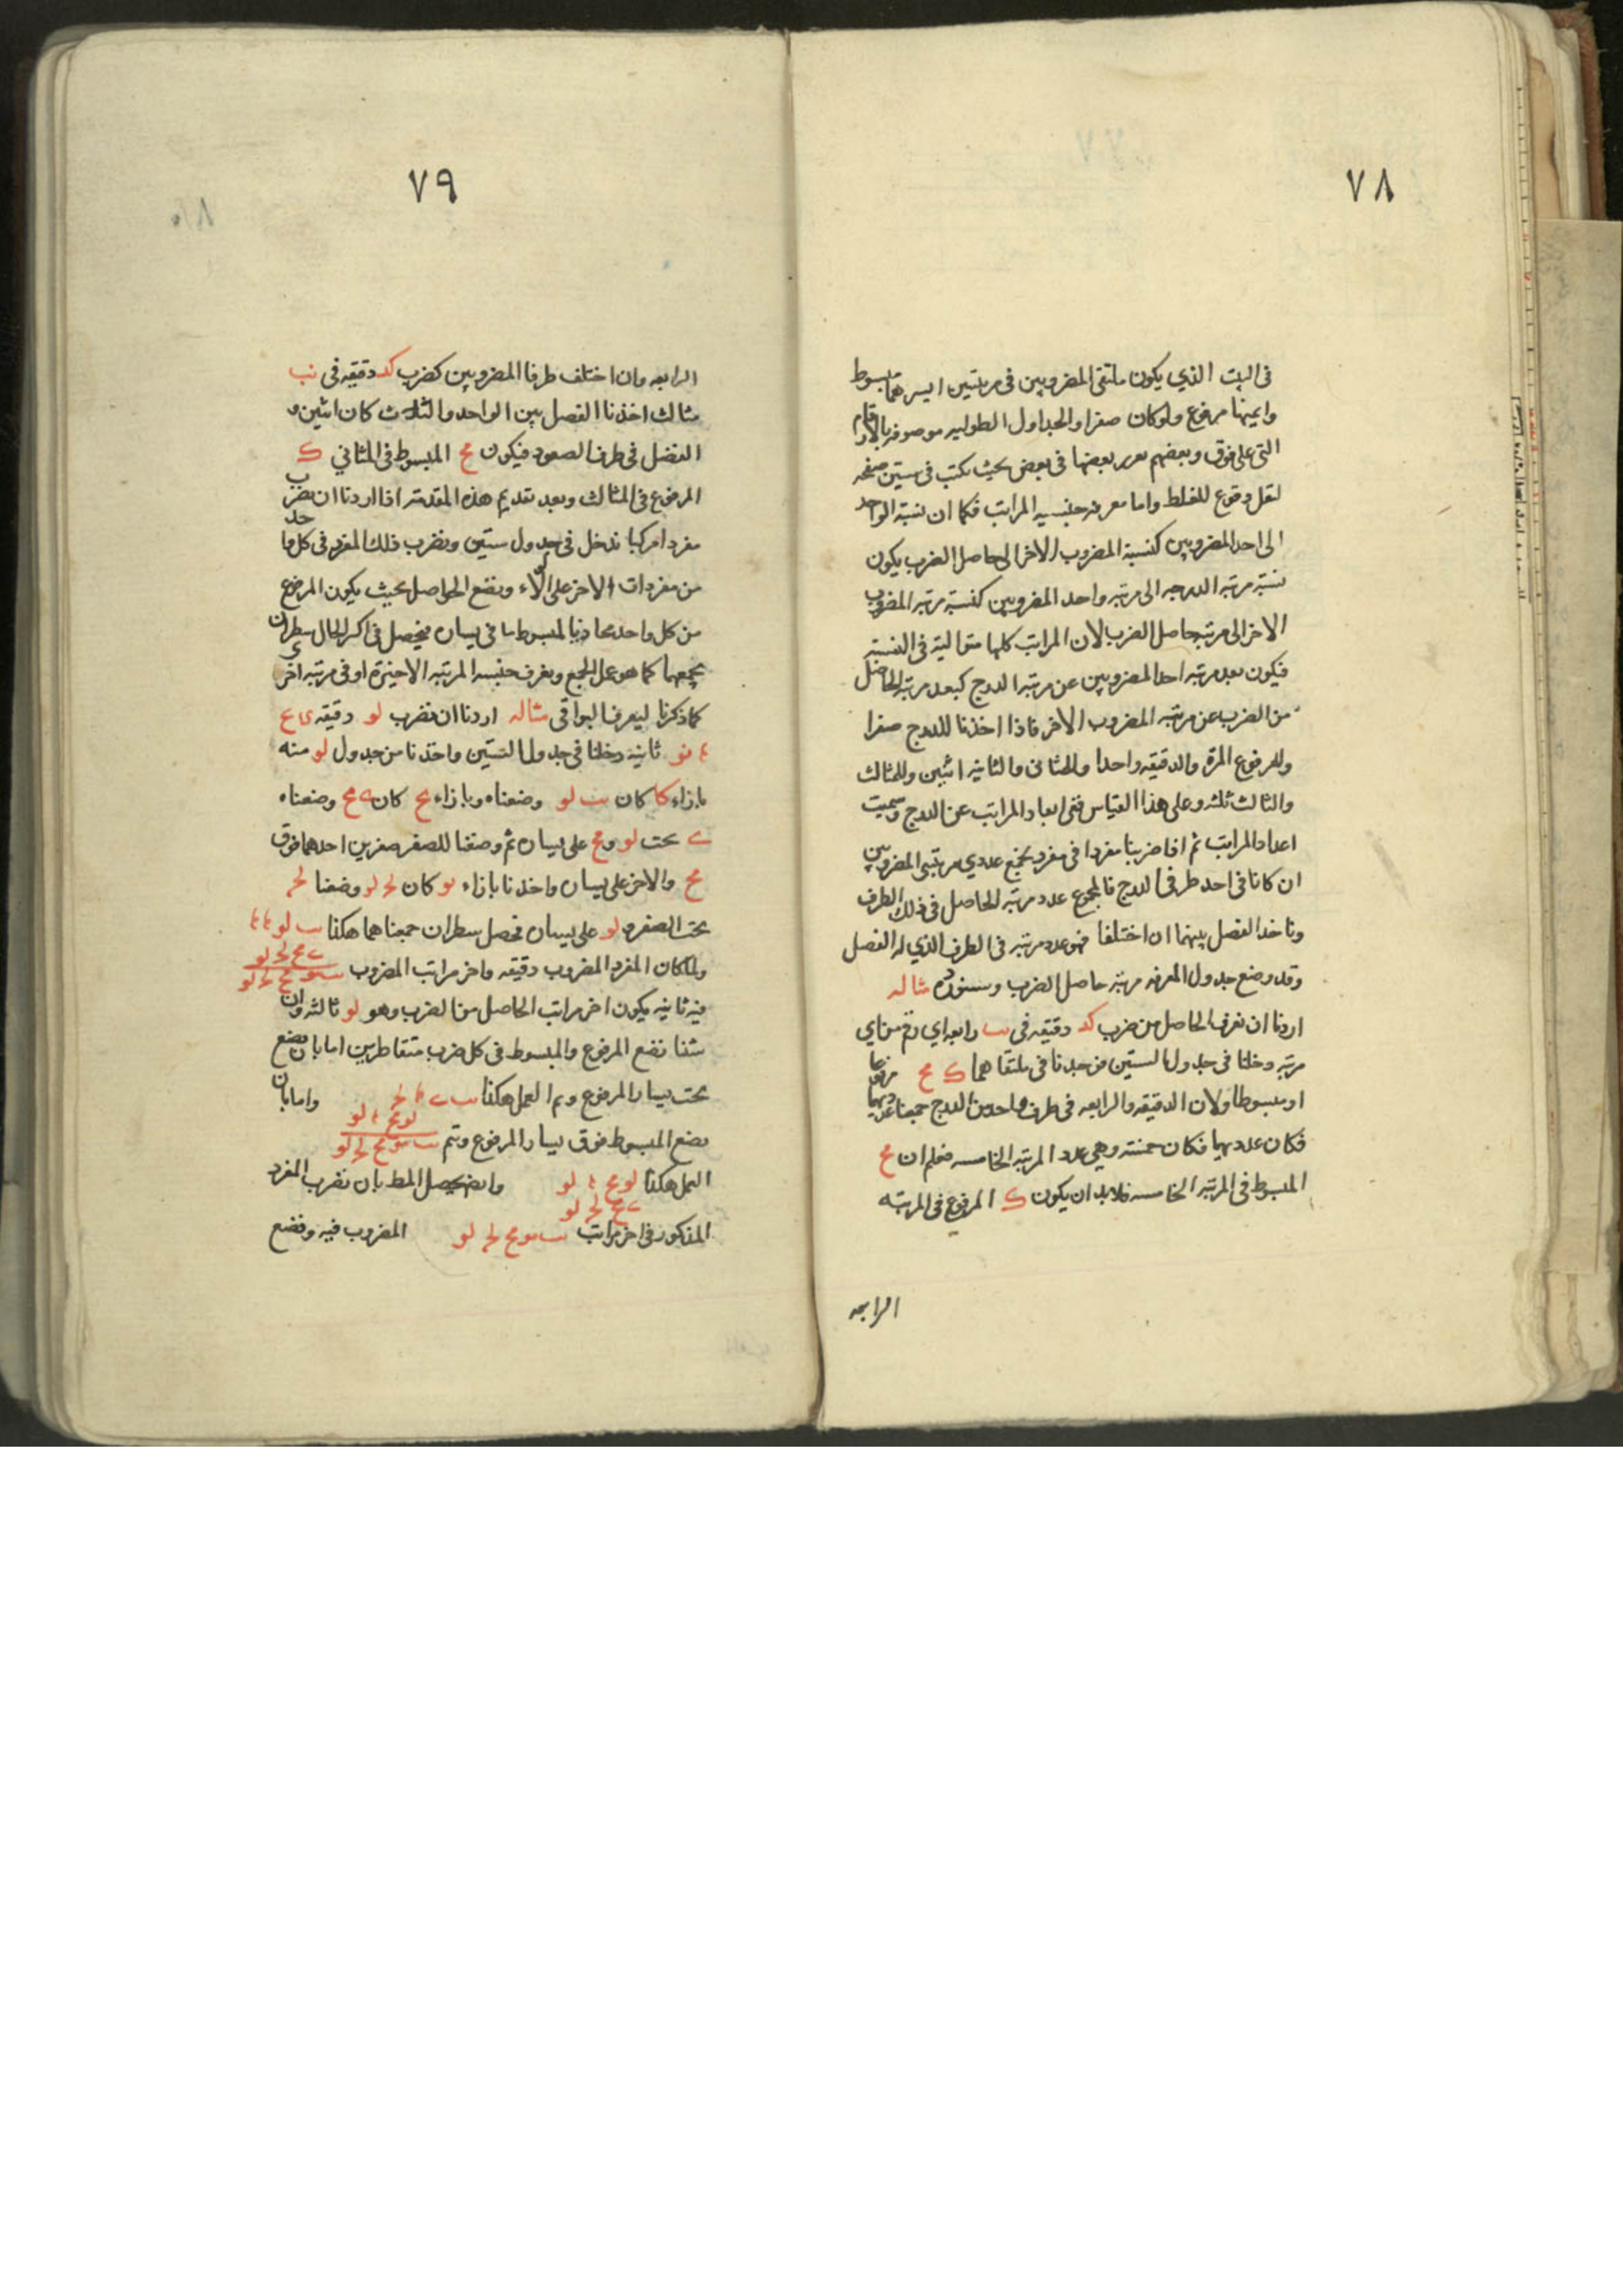 ٧٨
فى البيت الذي يكون ملتقى المضروبين فى مرتبتين ايسرهما مبسوط
وايمنها مرفوع ولو كان صفرا والجداول الطوليه موصوفه بالارقام
التى على فوق وبعضهم بعضها فى بعض بحيث يكتب فى ستين صفحه
لقل وقوع للغلط واما معرفه جنسيه المراتب فكما ان نسبة الواحد
الى احد المضروبين كنسبة المضروب الاخر الى حاصل الضرب يكون
نسبة مرتبه الدرجه الى مرتبه واحد المضروبين كنسبة مرتبه المضروب
الاخر الى مرتبه حاصل الضرب لان المراتب كلها متوالية فى النسبة
فيكون بعد مرتبه احد المضروبين عن مرتبه الدرج كبعد مرتبه الحاصل
من الضرب عن مرتبه المضروب الاخر فاذا اخذنا للدرج صفرا
وللمرفوع المرة والدقيقه واحدا وللمثانى والثانيه اثنين وللمثالث
والثالث ثلثه وعلى هذا القياس ففى ابعاد المراتب عن الدرج وسميت
اعداد المراتب ثم اذا ضربنا مفردا فى مفرد يجمع عددي مرتبتى المضروبين
ان كانا فى احد طرفى الدرج فالمجموع عدد مرتبه الحاصل فى ذلك الطرف
وناخذ الفضل بينهما ان اختلفا فهو عدد مرتبه فى الطرف الذي له الفضل
وقد وضع جدول لمعرفه مرتبه حاصل الضرب وسنورده مثاله
اردنا ان نعرف الحاصل من ضرب كد دقيقه فى ںٮ رابعه اي رقم من اي
مرتبه دخلنا فى جدول الستين فوجدنا فى ملتقاهما ك مح مرفوعا
او مبسوطا ولان الدقيقه والرابعه فى طرف واحد من الدرج جمعنا عدديهما
فكان عدديهما فكان خمسة وهى عدد المرتبه الخامسه فعلم ان مح
المبسوط فى المرتبه الخامسه فلا بد ان يكون ك المرفوع فى المرتبه
الرابعه
٧٩
الرابعه وان اختلف طرفا المضروبين كضرب كد دقيقه فى نب
مثالث اخذنا الفضل بين الواحد والثلاث كان اثنين و
الفضل فى طرف الصعود فيكون مح المبسوط فى المثاني ك
المرفوع فى المثالث وبعد تقديم هذه المقدمة اذا اردنا ان نضرب
مفردا مركبا ندخل فى جدول ستين ونضرب ذلك المفرد فى كل واحد
من مفردات الاخر على الولاء ونضع الحواصل بحيث يكون المرفوع
من كل واحد محاذيا لمبسوط ما فى يساره فيحصل فى اكثر الحال سطران
نجمعهما كما هو عمل الجمع ونعرف جنسه المرتبه الاخيرة او فى مرتبه اخرى
كما ذكرنا ليعرف البواقى مثاله اردنا ان نضرب لو دقيقه فى كا مح
نو ثانيه دخلنا فى جدول الستين واخذنا من جدول لو منه
بازاء كا كان ىب لو وضعناه وبازاء مح كان ى مح وضعناه
ى تحت لو ومح على يساره ثم وضعنا للصفر صفرين احدهما فوق
مح والاخر على يساره واخذنا بازاء نو كان لح لو وضعنا لح
تحت الصفر و لو على يساره فحصل سطران جمعناهما هكذا ىب لو
ى مح لح لو
ولما كان المفرد المضروب دقيقه واخر مراتب المضروب ىب مو مح لح لو
فيه ثانيه يكون اخر مراتب الحاصل من الضرب وهو لو ثالثه وان
شئنا نضع المرفوع والمبسوط فى كل ضرب متقاطرين اما بان نضع
تحت يسار المرفوع ونتم العمل هكذا ىب ى لح واما بان
لو مح لو
نضع المبسوط فوق يسار المرفوع ونتم ىب مو مح لح لو
العمل هكذا لو مح لو وايضا يحصل المط بان نضرب المفرد
المذكور فى اخر مراتب ىب مو مح لح لو المضروب فيه ونضع